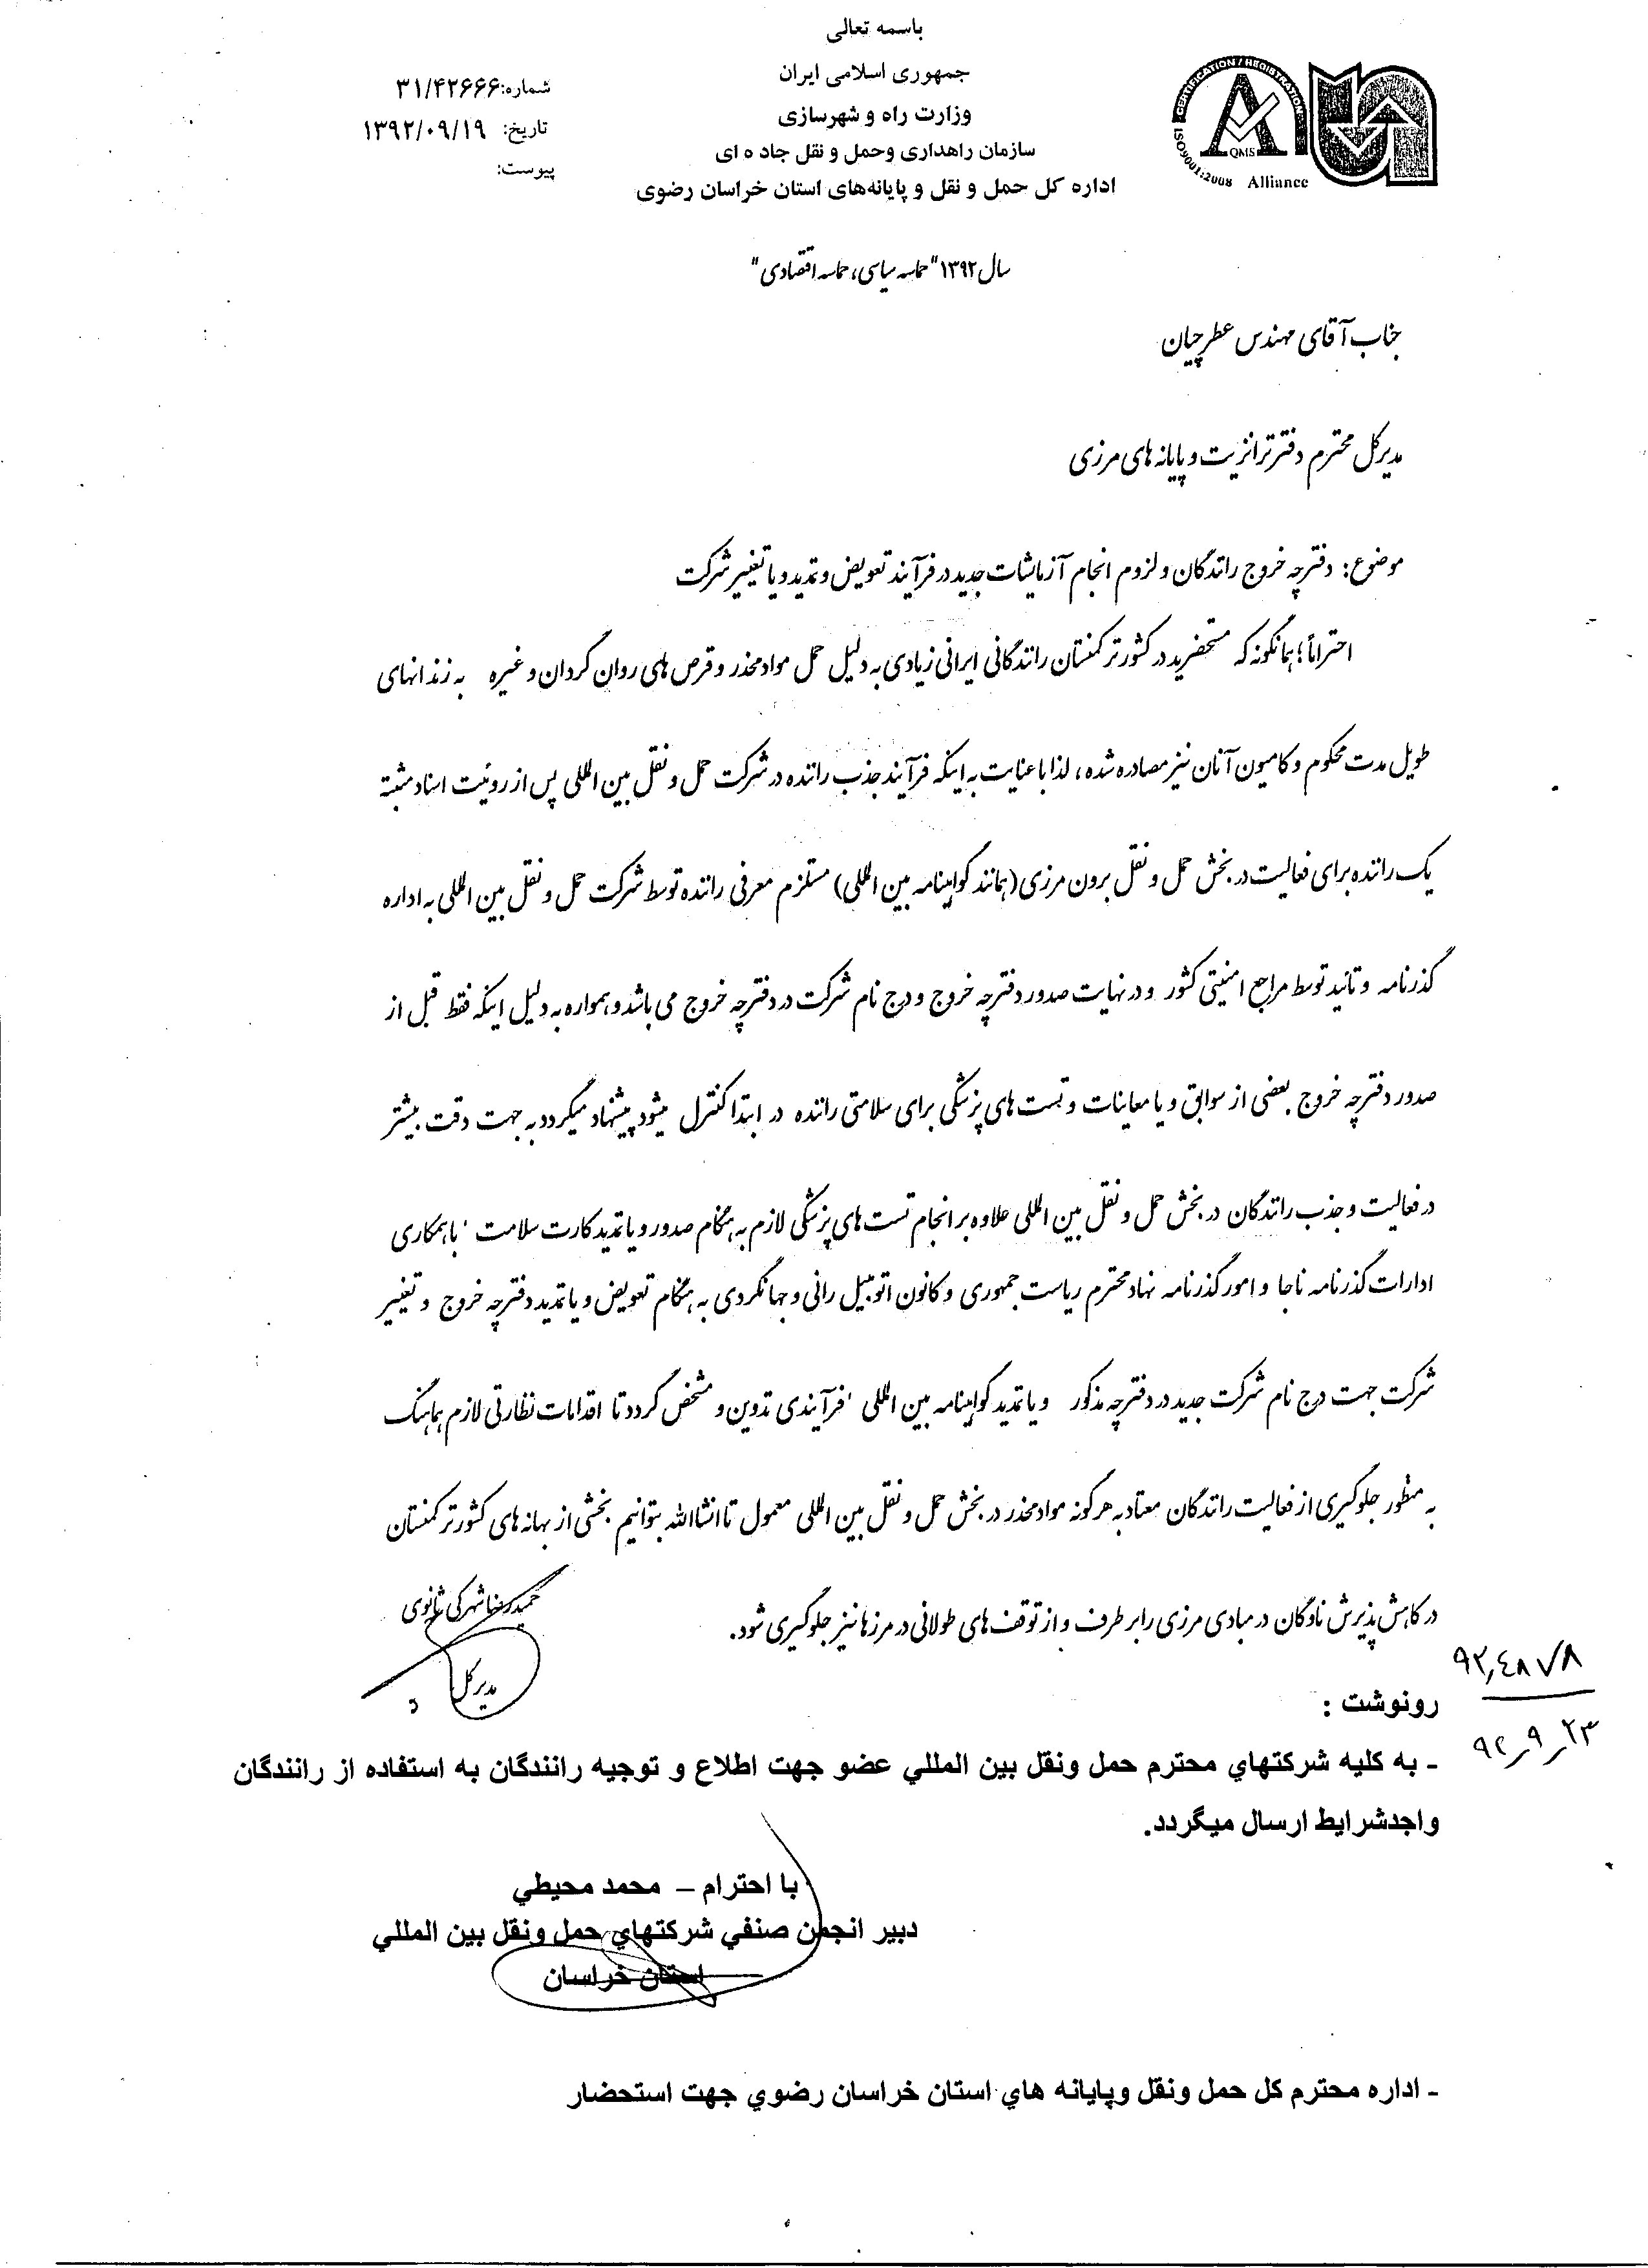 باسمه تعالی
جمهوری اسلامی ایران
وزارت راه و شهرسازی
سازمان راهداری وحمل و نقل جاده ای
اداره کل حمل و نقل و پایانه‌های استان خراسان رضوی
شماره: ۳۱/۴۲۶۶۶
تاریخ: ۱۳۹۲/۰۹/۱۹
پیوست:
CERTIFICATION / REGISTRATION
QMS
ISO9001:2008 Alliance
سال ۱۳۹۲ "حماسه سیاسی، حماسه اقتصادی"
جناب آقای مهندس عطرچیان
مدیرکل محترم دفتر ترانزیت و پایانه های مرزی
موضوع: دفترچه خروج رانندگان و لزوم انجام آزمایشات جدید در فرآیند تعویض و تمدید و یا تغییر شرکت
احتراماً؛ همانگونه که مستحضرید در کشور ترکمنستان رانندگانی ایرانی زیادی به دلیل حمل مواد مخدر و قرص های روان گردان و غیره به زندانهای
طویل مدت محکوم و کامیون آنان نیز مصادره شده، لذا با عنایت به اینکه فرآیند جذب راننده در شرکت حمل و نقل بین المللی پس از روئیت اسناد مثبته
یک راننده برای فعالیت در بخش حمل و نقل برون مرزی (همانند گواهینامه بین المللی) مستلزم معرفی راننده توسط شرکت حمل و نقل بین المللی به اداره
گذرنامه و تائید توسط مراجع امنیتی کشور و در نهایت صدور دفترچه خروج و درج نام شرکت در دفترچه خروج می باشد و همواره به دلیل اینکه فقط قبل از
صدور دفترچه خروج بعضی از سوابق و یا معاینات و تست های پزشکی برای سلامتی راننده در ابتدا کنترل میشود پیشنهاد میگردد به جهت دقت بیشتر
در فعالیت و جذب رانندگان در بخش حمل و نقل بین المللی علاوه بر انجام تست های پزشکی لازم به هنگام صدور و یا تمدید کارت سلامت ' با همکاری
ادارات گذرنامه ناجا و امور گذرنامه نهاد محترم ریاست جمهوری و کانون اتومبیل رانی و جهانگردی به هنگام تعویض و یا تمدید دفترچه خروج و تغییر
شرکت جهت درج نام شرکت جدید در دفترچه مذکور و یا تمدید گواهینامه بین المللی ' فرآیندی تدوین و مشخص گردد تا اقدامات نظارتی لازم هماهنگ
به منظور جلوگیری از فعالیت رانندگان معتاد به هرگونه مواد مخدر در بخش حمل و نقل بین المللی معمول تا انشاالله بتوانیم بخشی از بهانه های کشور ترکمنستان
در کاهش پذیرش ناوگان در مبادی مرزی را بر طرف و از توقف های طولانی در مرزها نیز جلوگیری شود.
حمیدرضا شهرکی ثانوی
مدیرکل
۹۲٫۴۸۷۸
۹۲٫۹٫۲۳
رونوشت :
- به کلیه شرکتهاي محترم حمل ونقل بین المللي عضو جهت اطلاع و توجیه رانندگان به استفاده از رانندگان
واجدشرایط ارسال میگردد.
با احترام – محمد محیطي
دبیر انجمن صنفي شرکتهاي حمل ونقل بین المللي
استان خراسان
- اداره محترم کل حمل ونقل وپایانه هاي استان خراسان رضوي جهت استحضار